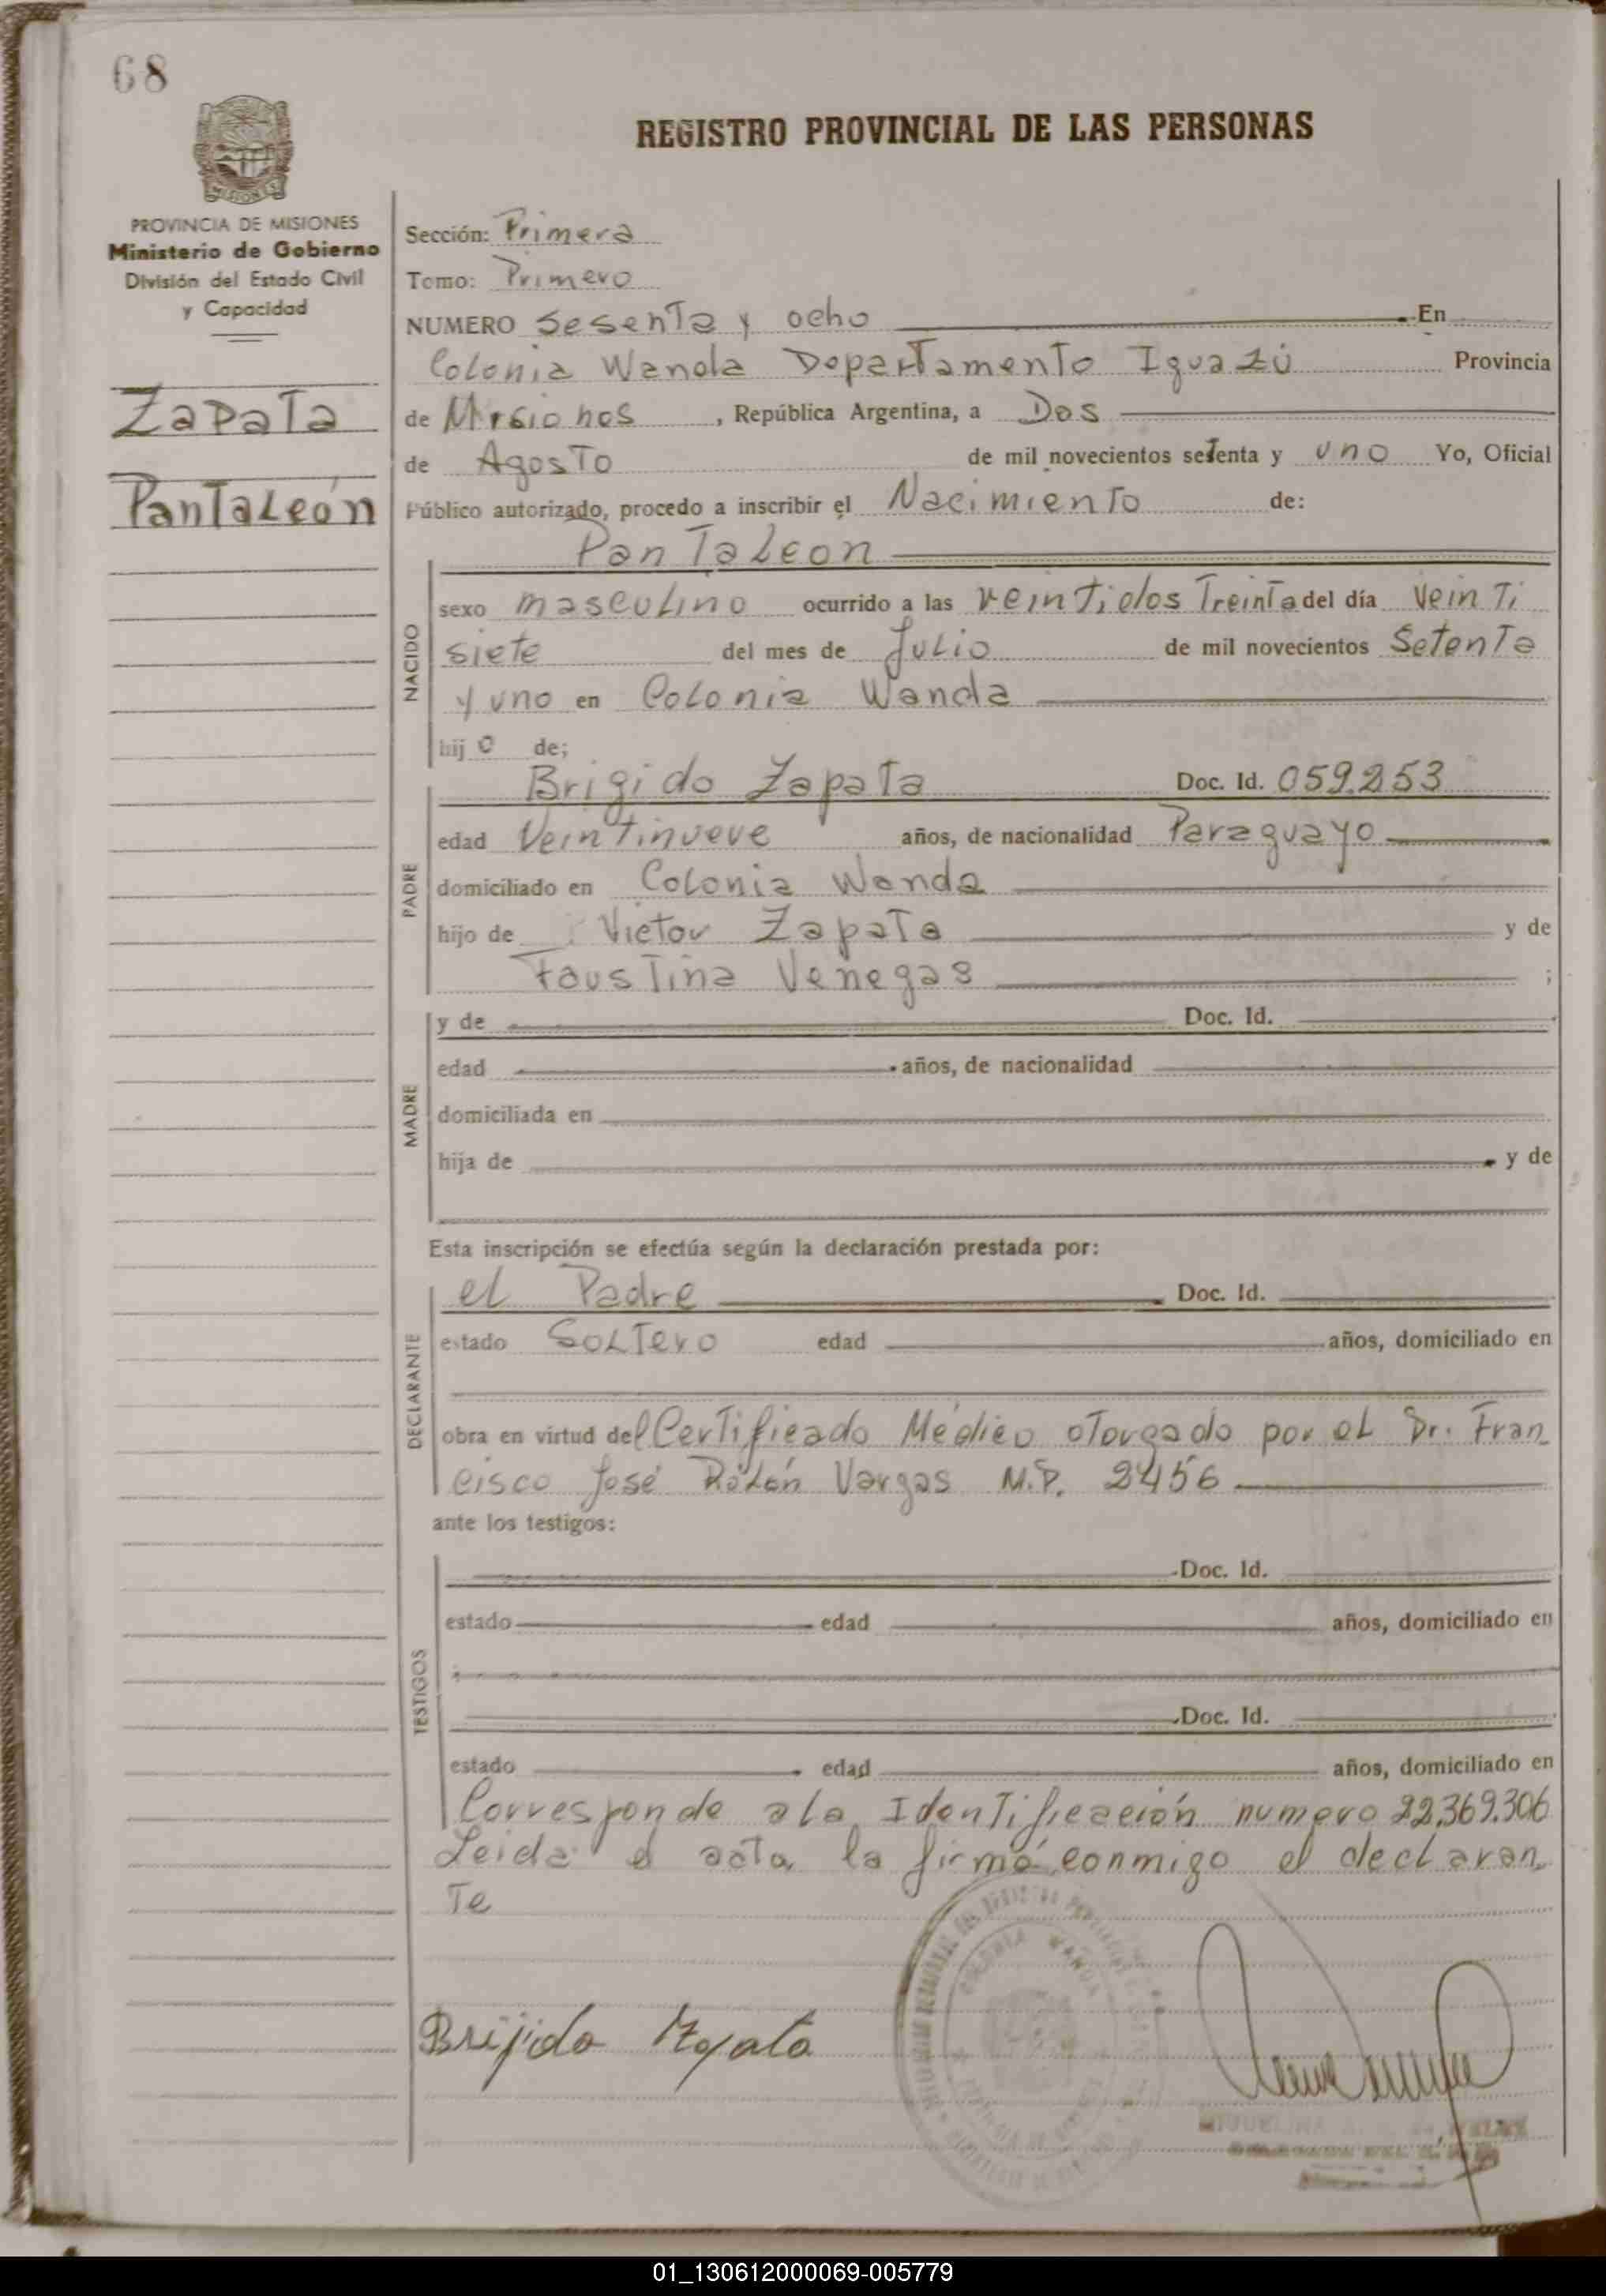 68
MISIONES
PROVINCIA DE MISIONES
Ministerio de Gobierno
División del Estado Civil
y Capacidad
Zapata
Pantaleón
REGISTRO PROVINCIAL DE LAS PERSONAS
Sección: Primera
Tomo: Primero
NUMERO Sesenta y ocho En
Colonia Wanda Departamento Iguazú Provincia
de Misiones, República Argentina, a Dos
de Agosto de mil novecientos setenta y uno Yo, Oficial
Público autorizado, procedo a inscribir el Nacimiento de:
Pantaleon
NACIDO
sexo masculino ocurrido a las veintidos Treinta del día Veinti
siete del mes de Julio de mil novecientos Setenta
y uno en Colonia Wanda
hijo de;
PADRE
Brigido Zapata Doc. Id. 059.253
edad Veintinueve años, de nacionalidad Paraguayo
domiciliado en Colonia Wanda
hijo de Victor Zapata y de
Faustina Venegas ;
MADRE
y de Doc. Id.
edad años, de nacionalidad
domiciliada en
hija de y de
Esta inscripción se efectúa según la declaración prestada por:
DECLARANTE
el Padre Doc. Id.
estado Soltero edad años, domiciliado en
obra en virtud del Certificado Médico otorgado por el Dr. Fran
cisco José Vargas M.P. 2456
ante los testigos:
TESTIGOS
Doc. Id.
estado edad años, domiciliado en
Doc. Id.
estado edad años, domiciliado en
Corresponde a la Identificación numero 22.369.306
Leida el acta, la firmó conmigo el declaran
te
COLONIA WANDA
Brijido Zapata
01_130612000069-005779